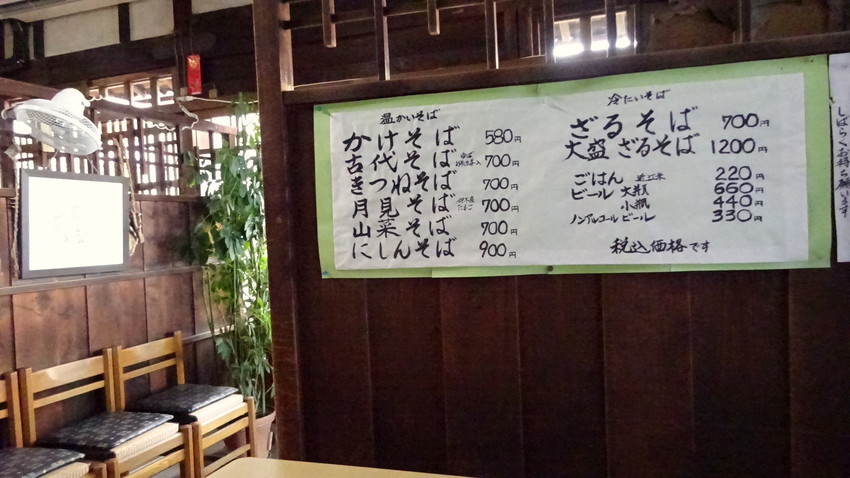 温かいそば
かけそば 580円
古代そば 700円
きつねそば 700円
月見そば 700円
山菜そば 700円
にしんそば 900円
冷たいそば
ざるそば 700円
大盛ざるそば 1200円
ごはん 220円
ビール 大瓶 660円
小瓶 440円
ノンアルコールビール 330円
税込価格です
しばらくお待ち願います